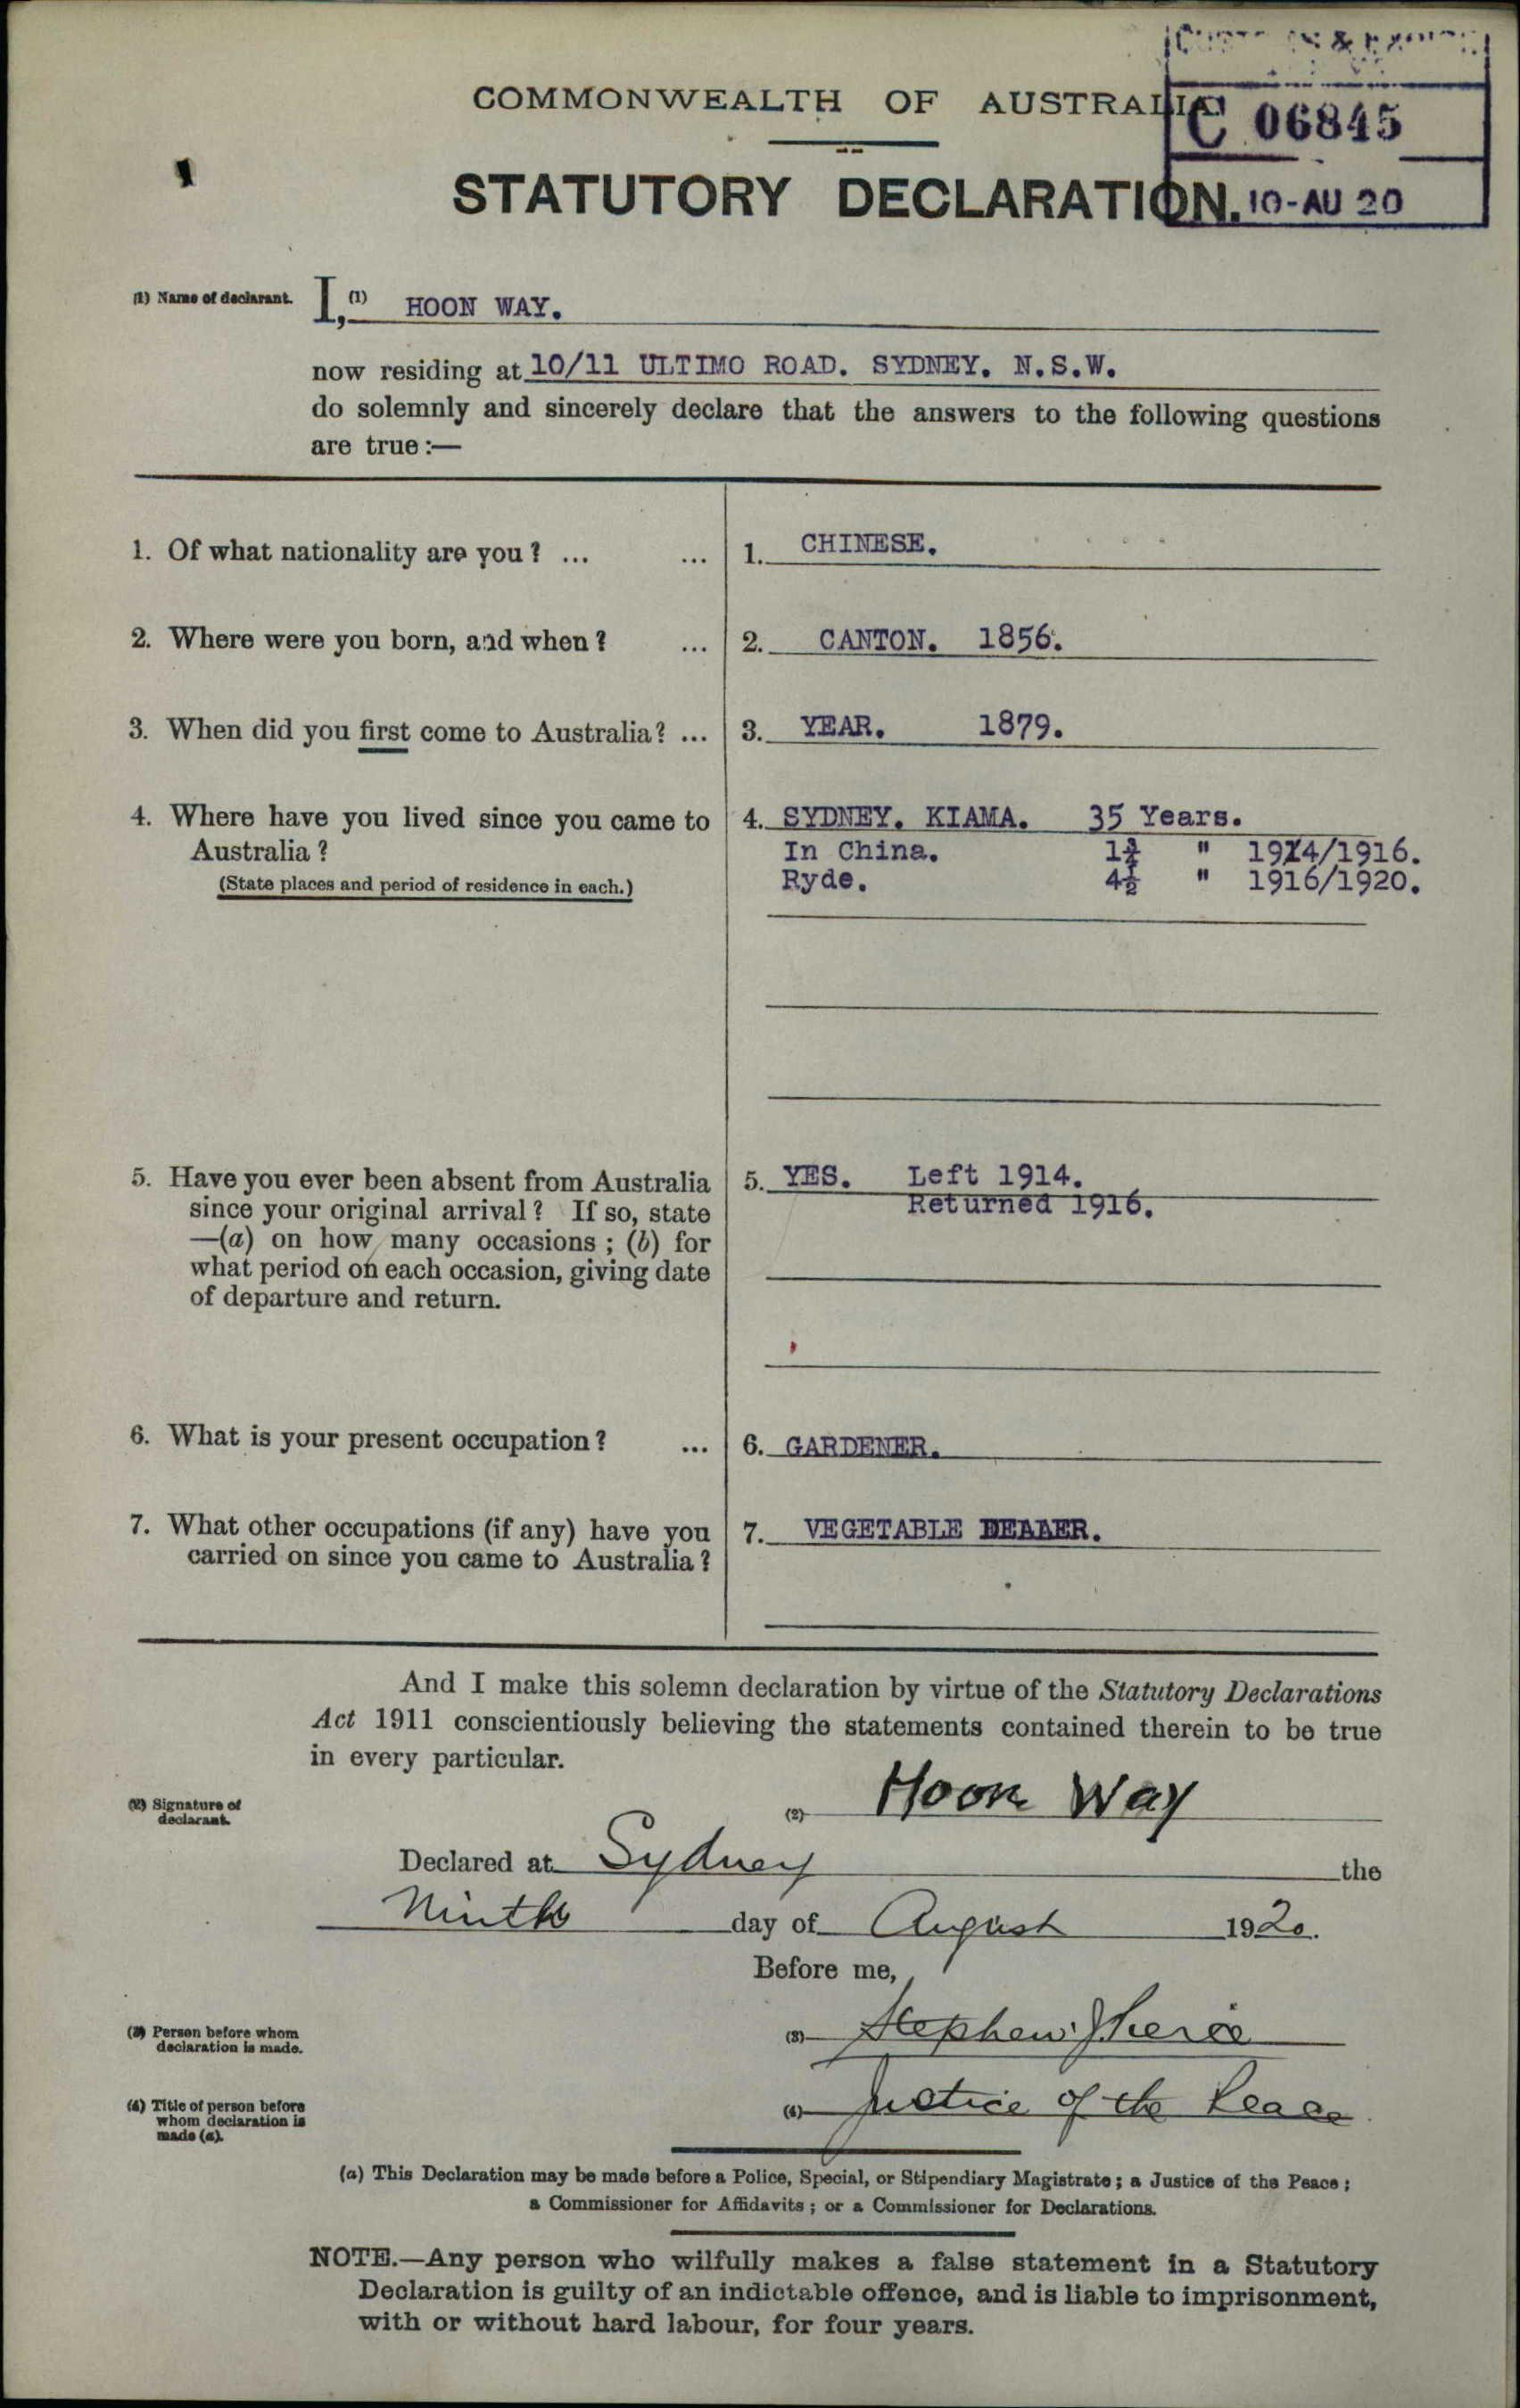 CUSTOMS & EXCISE
COMMONWEALTH OF AUSTRALIA
C 06845
STATUTORY DECLARATION.
10-AU 20
(1) Name of declarant.
I, (1) HOON WAY.
now residing at 10/11 ULTIMO ROAD. SYDNEY. N.S.W.
do solemnly and sincerely declare that the answers to the following questions
are true:—
1. Of what nationality are you? ... ... 1. CHINESE.
2. Where were you born, and when? ... 2. CANTON. 1856.
3. When did you first come to Australia? ... 3. YEAR. 1879.
4. Where have you lived since you came to 4. SYDNEY. KIAMA. 35 Years.
Australia? In China. 1¾ " 1914/1916.
(State places and period of residence in each.) Ryde. 4½ " 1916/1920.
5. Have you ever been absent from Australia 5. YES. Left 1914.
since your original arrival? If so, state Returned 1916.
—(a) on how many occasions; (b) for
what period on each occasion, giving date
of departure and return.
6. What is your present occupation? ... 6. GARDENER.
7. What other occupations (if any) have you 7. VEGETABLE DEALER.
carried on since you came to Australia?
And I make this solemn declaration by virtue of the Statutory Declarations
Act 1911 conscientiously believing the statements contained therein to be true
in every particular.
(2) Signature of
declarant.
(2) Hoon Way
Declared at Sydney the
Ninth day of August 1920.
Before me,
(3) Person before whom
declaration is made.
(3) Stephen
(4) Title of person before
whom declaration is
made (a).
(4) Justice of the Peace
(a) This Declaration may be made before a Police, Special, or Stipendiary Magistrate; a Justice of the Peace;
a Commissioner for Affidavits; or a Commissioner for Declarations.
NOTE.—Any person who wilfully makes a false statement in a Statutory
Declaration is guilty of an indictable offence, and is liable to imprisonment,
with or without hard labour, for four years.